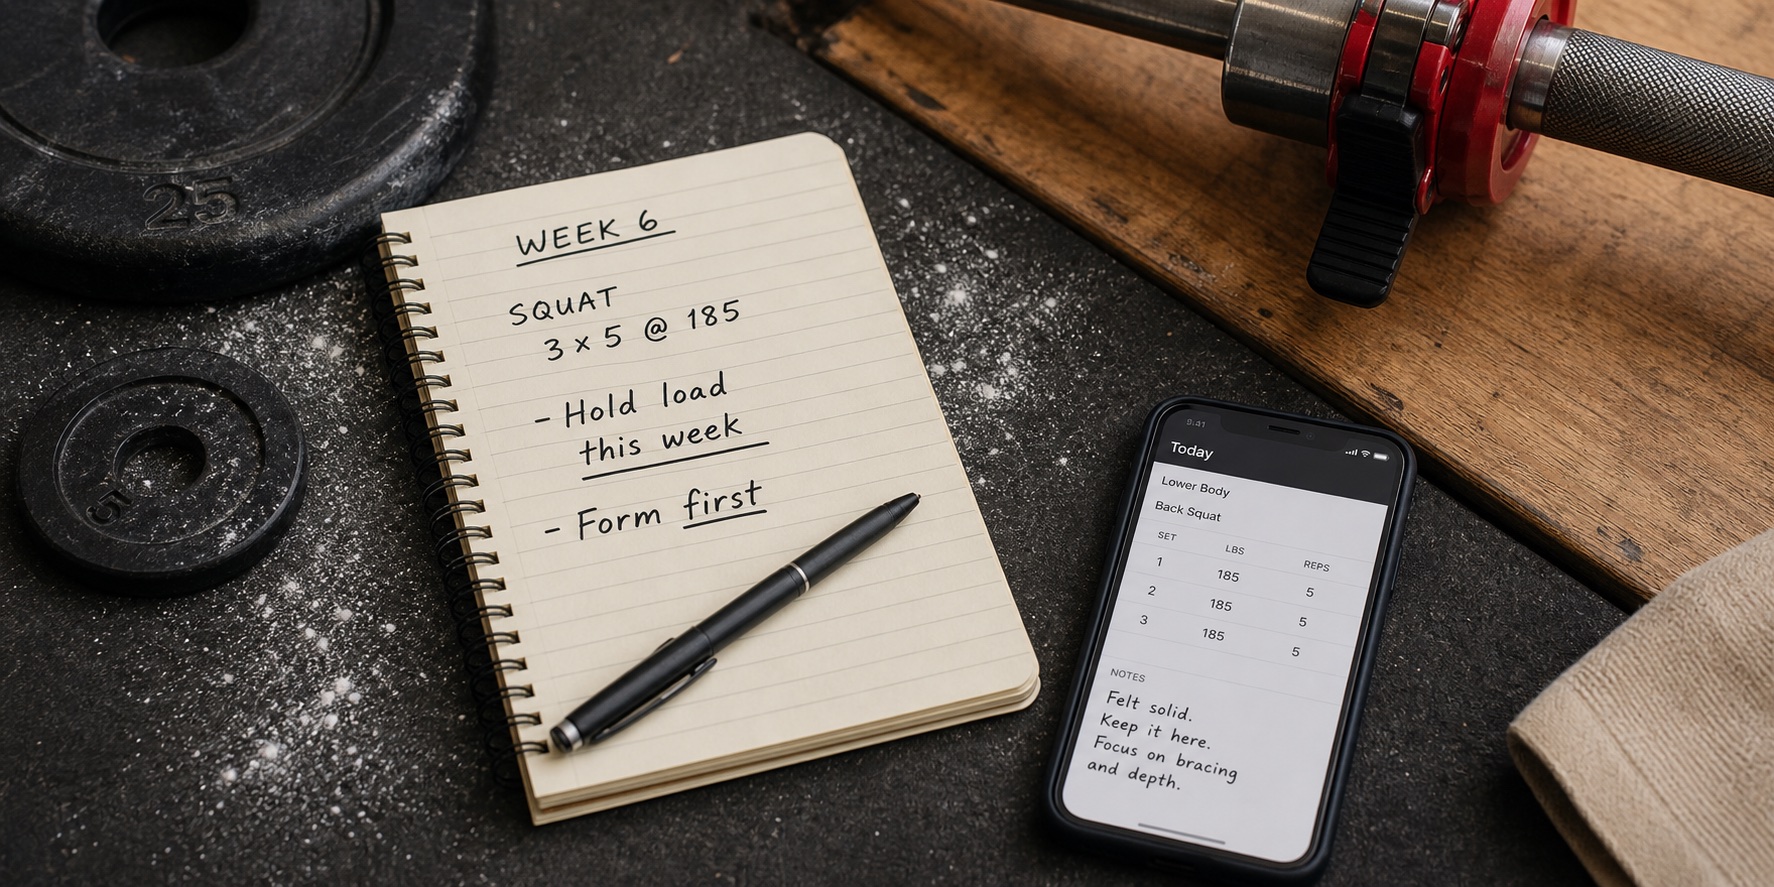 25
5
WEEK 6
SQUAT
3 x 5 @ 185
- Hold load
this week
- Form first
9:41
Today
Lower Body
Back Squat
SET LBS REPS
1 185 5
2 185 5
3 185 5
NOTES
Felt solid.
Keep it here.
Focus on bracing
and depth.